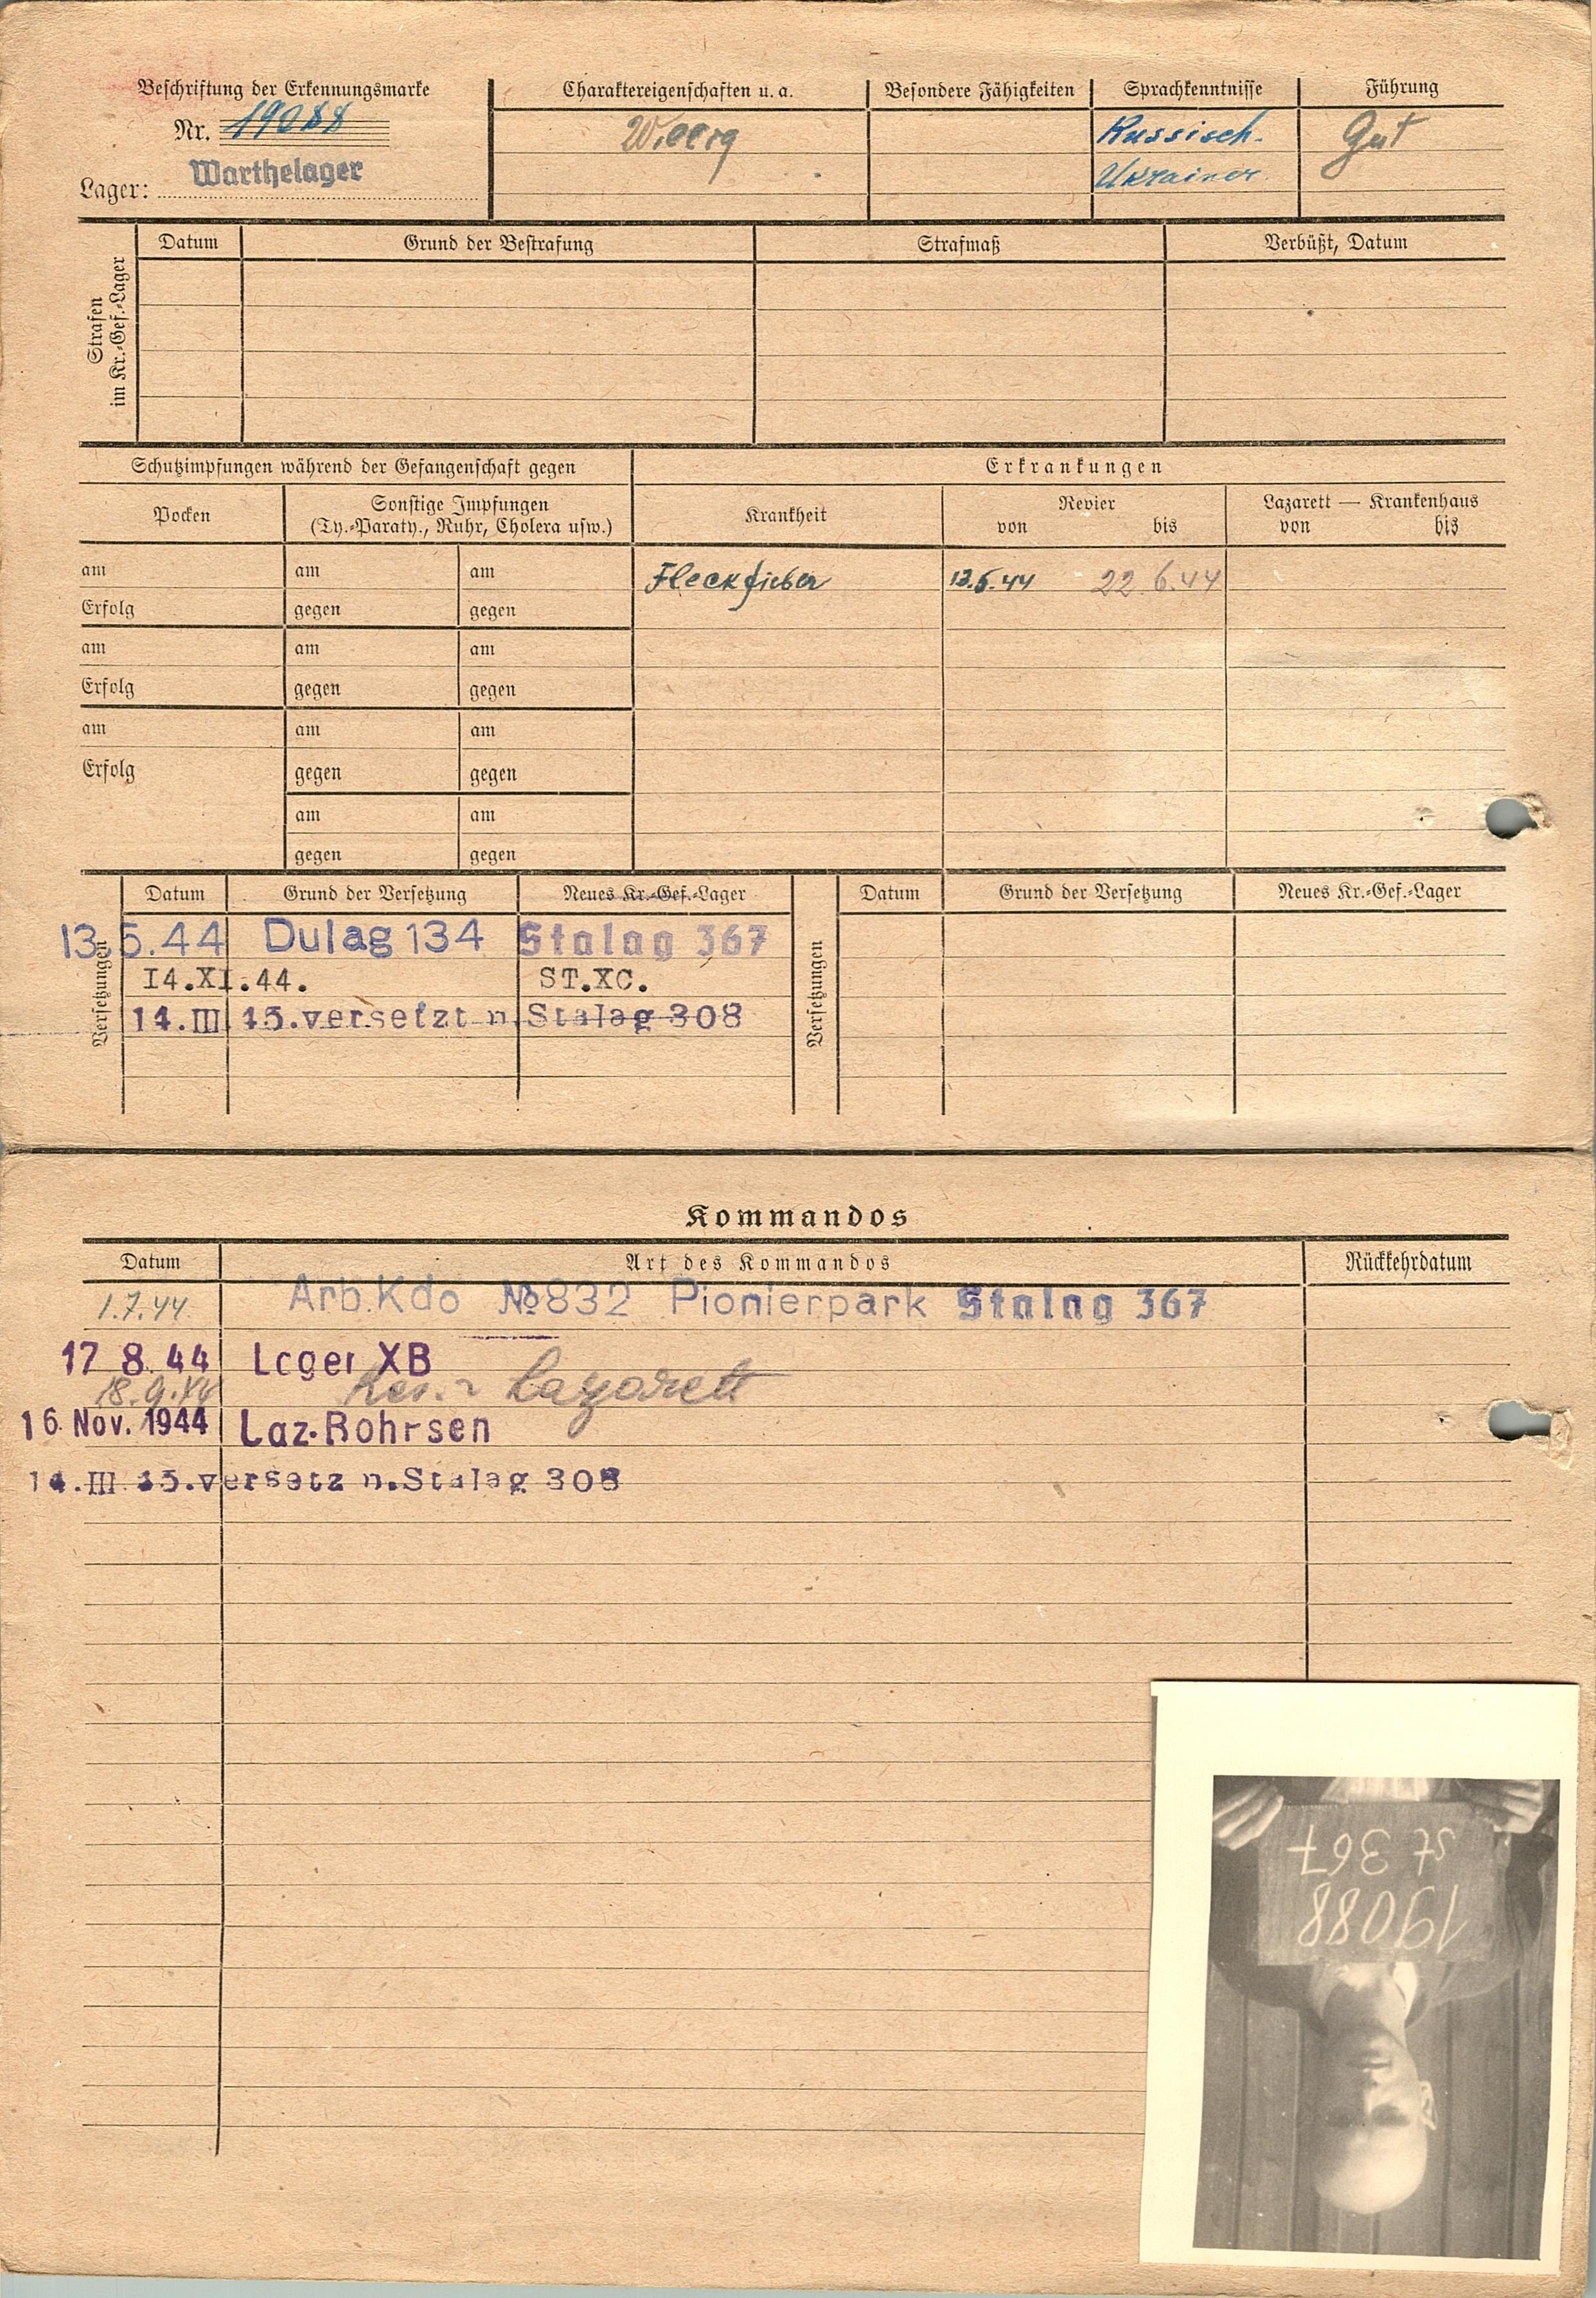 Beschriftung der Erkennungsmarke
Nr. 19088
Lager: Warthelager
Charaktereigenschaften u. a.
Willig
Besondere Fähigkeiten
Sprachkenntnisse
Russisch.
Ukrainer.
Führung
Gut
Strafen
im Kr.-Gef.-Lager
Datum Grund der Bestrafung Strafmaß Verbüßt, Datum
Schutzimpfungen während der Gefangenschaft gegen
Erkrankungen
Pocken
Sonstige Impfungen
(Ty.-Paraty., Ruhr, Cholera usw.)
Krankheit
Revier
von bis
Lazarett — Krankenhaus
von bis
am am am
Fleckfieber 13.5.44 22.6.44
Erfolg gegen gegen
am am am
Erfolg gegen gegen
am am am
Erfolg gegen gegen
am am
gegen gegen
Versetzungen
Datum Grund der Versetzung Neues Kr.-Gef.-Lager
13.5.44 Dulag 134 Stalag 367
I4.XI.44. ST.XC.
14.III 45.versetzt n.Stalag 308
Versetzungen
Datum Grund der Versetzung Neues Kr.-Gef.-Lager
Kommandos
Datum Art des Kommandos Rückkehrdatum
1.7.44 Arb.Kdo №832 Pionierpark Stalag 367
17 8. 44 Lager XB
18.9.44 Lazarett
16. Nov. 1944 Laz.Rohrsen
14.III 45.versetz n.Stalag 308
19088
St 367